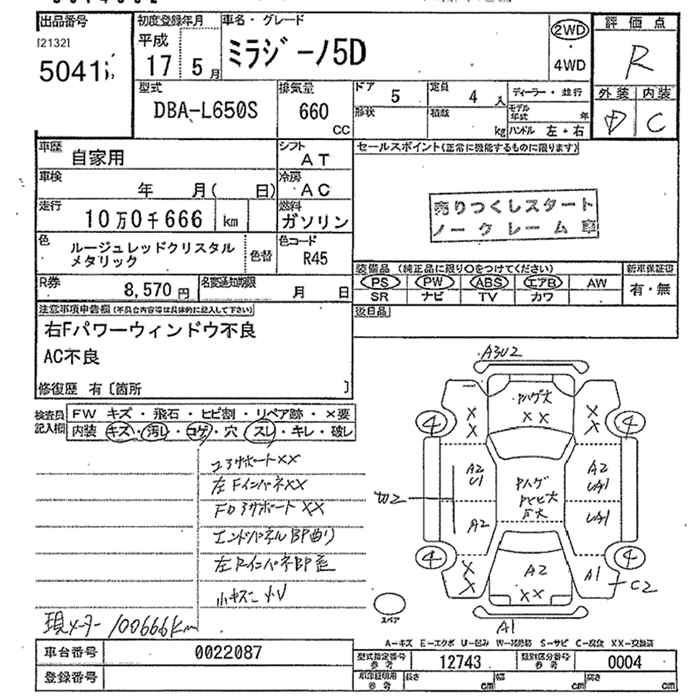 出品番号
[2132]
初度登録年月
車名・グレード
評価点
平成
17 5月
ミラジーノ5D
2WD
・
4WD
R
型式
排気量
ドア
5
定員
4 人
ディーラー・並行
外装 内装
DBA-L650S
660
CC
形状
積載
kg
モデル年式 年
ハンドル 左・右
D C
車歴
自家用
シフト
AT
セールスポイント(正常に機能するものに限ります)
車検
年 月( 日)
冷房
AC
走行
10万0千666 km
燃料
ガソリン
売りつくしスタート
ノークレーム車
色
ルージュレッドクリスタル
メタリック
色替
色コード
R45
R券
8,570 円
名変通知期限
月 日
装備品 (純正品に限り○をつけてください)
新車保証書
PS PW ABS エアB AW
有・無
SR ナビ TV カワ
注意事項申告欄(不具合内容等は具体的に記入して下さい)
後日品
右Fパワーウィンドウ不良
AC不良
修復歴 有〔箇所 〕
検査員
記入欄
FW キズ・飛石・ヒビ割・リペア跡・×要
内装 キズ・汚レ・コゲ・穴・スレ・キレ・破レ
コアサポートXX
左FインパネXX
エンドパネルBP曲り
現メーター 100666km
A3U2
XX
XX
XX
A2
U1
A2
A2
UA1
UA1
4
4
4
4
A2
XX
XX
A1
C2
A1
スペア
A-キズ E-エクボ U-凹ミ S-サビ C-腐食 XX-交換済
車台番号
0022087
型式指定番号
参考
12743
類別区分番号
参考
0004
登録番号
長さ cm
幅 cm
高さ cm